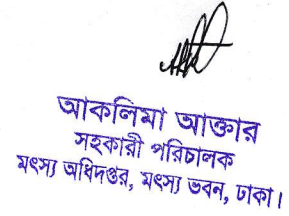 আকলিমা আক্তার
সহকারী পরিচালক
মৎস্য অধিদপ্তর, মৎস্য ভবন, ঢাকা।